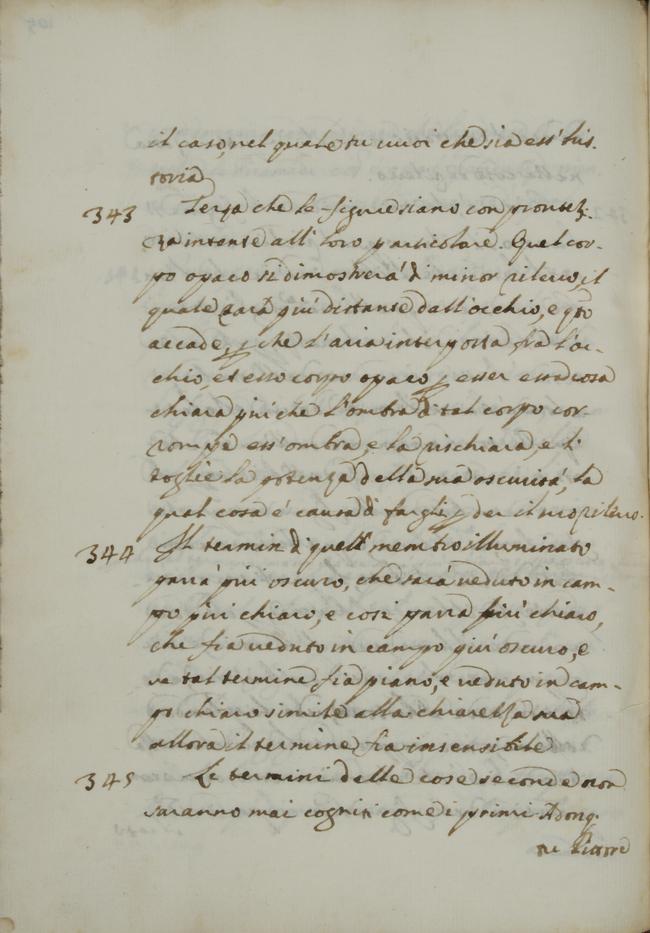 il caso, nel quale tu vuoi che sia ess' his-
toria
343 Terza che le figure siano con prontez-
za intente all' loro particolare. Quel cor-
po opaco si dimostrerà di minor rilevo, il
quale sarà più distante dall'occhio, e qto
accade, p che l'aria interposta fra l'oc-
chio, et esso corpo opaco p esser essa cosa
chiara più che l'ombra di tal corpo cor-
rompe ess'ombra, e la rischiara, e li
toglie la potenza della sua oscurità, la
qual cosa è causa di fargli pder il suo rilevo.
344 Il termin di quell' membro illuminato
parrà più oscuro, che sarà veduto in cam-
po più chiaro, e così parrà più chiaro,
che fia veduto in campo più oscuro, e
se tal termine fia piano, e veduto in cam-
po chiaro simile alla chiarezza sua
allora il termine fia insensibile
345 Le termini delle cose seconde non
saranno mai cogniti come i primi Adonq.
ne Pittore